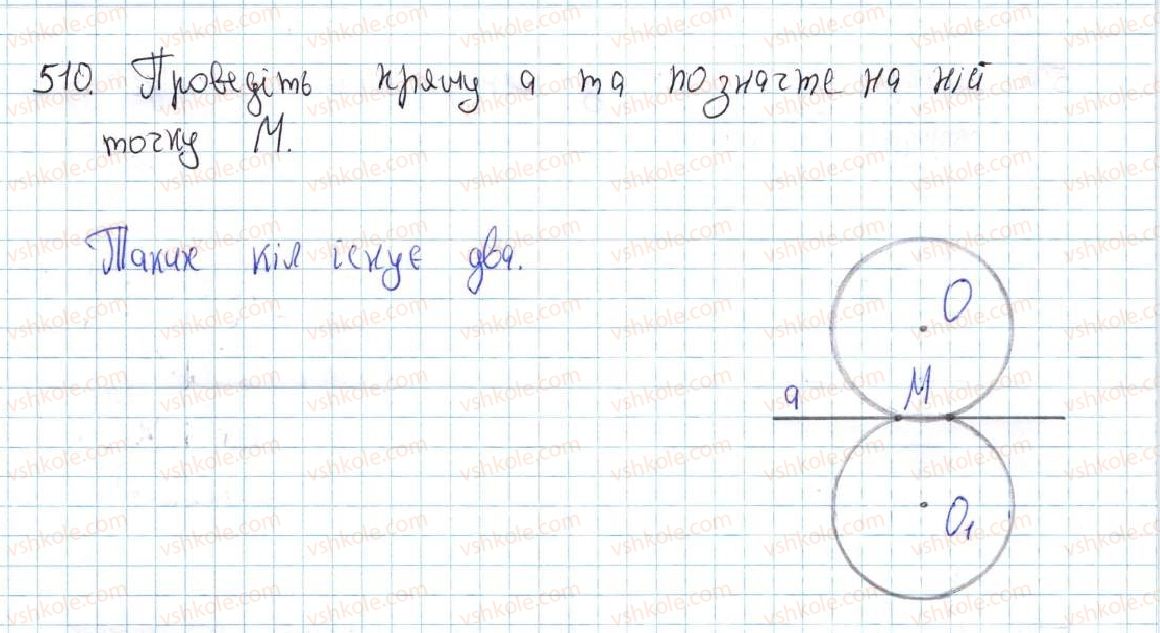 510. Проведіть пряму а та позначте на ній
точку М.
Таких кіл існує два.
О
М
а
О₁